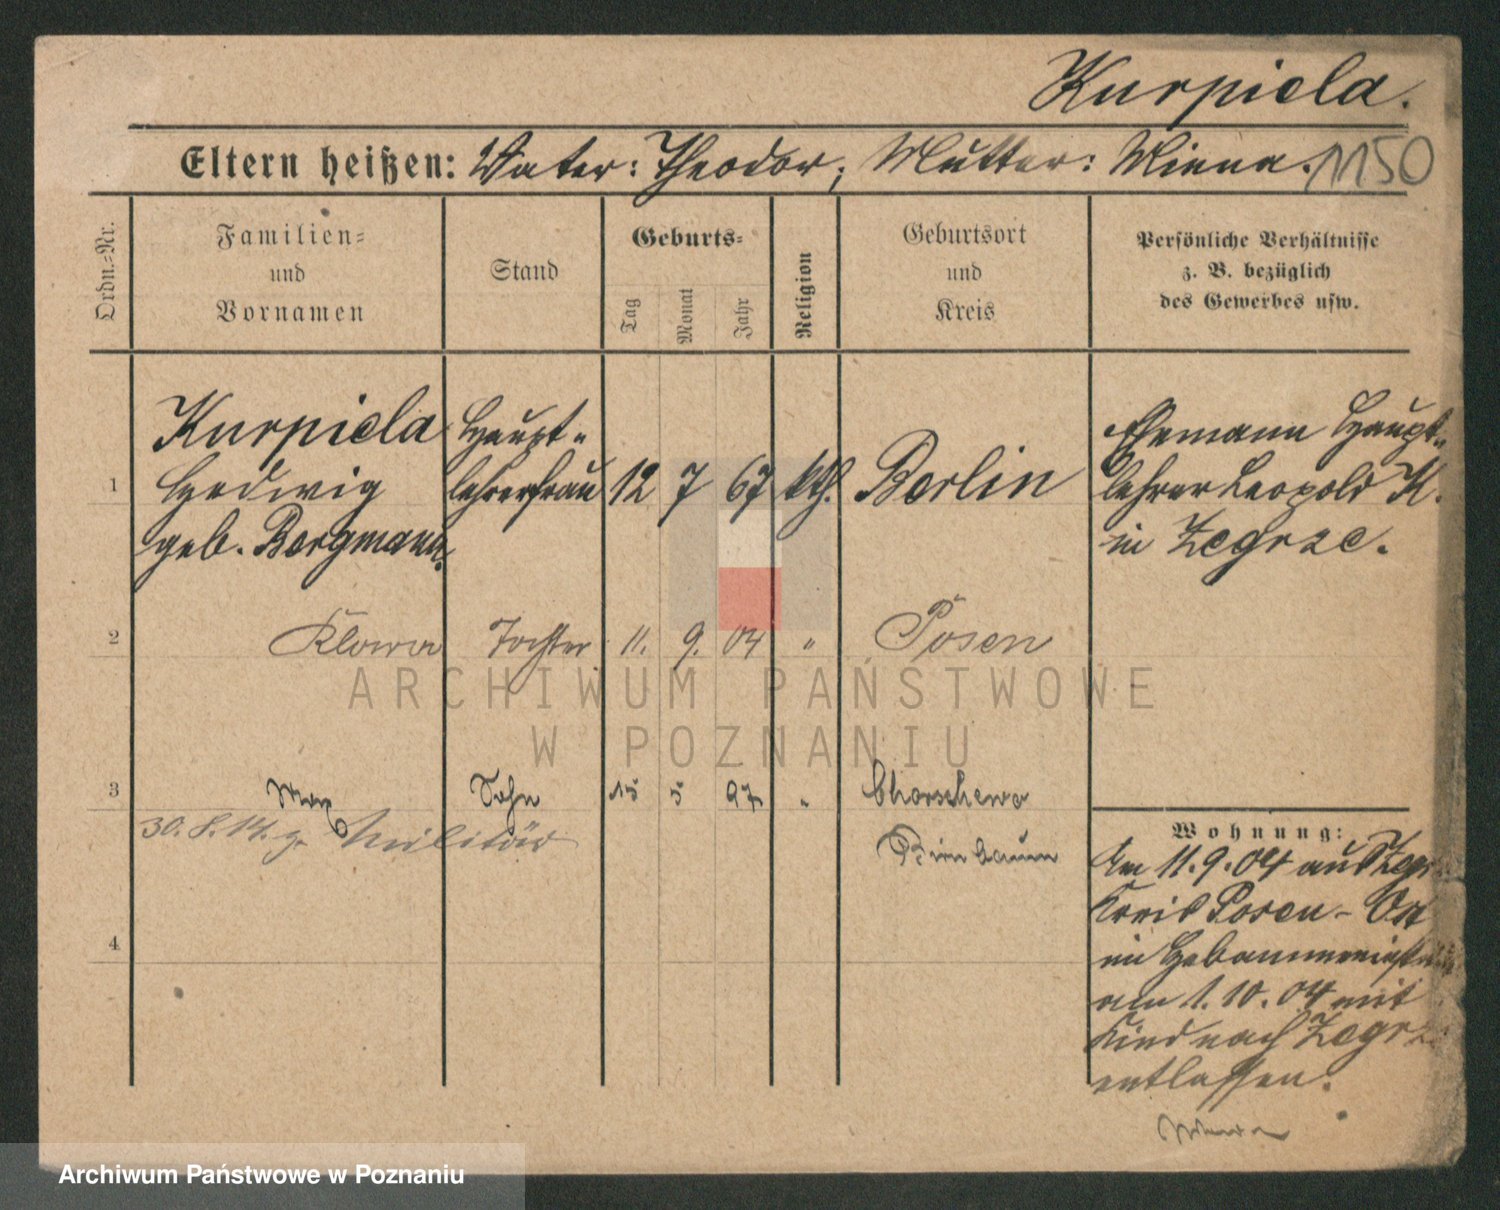 Kurpiela.
Eltern heißen: Vater: Theodor; Mutter: Minna. 1150
Ordn.-Nr.
Familien-
und
Vornamen
Stand
Geburts-
Tag
Monat
Jahr
Religion
Geburtsort
und
Kreis
Persönliche Verhältnisse
z. B. bezüglich
des Gewerbes usw.
1
Kurpiela
Hedwig
geb. Bergmann.
Haupt-
lehrerfrau
12 7 67 kth. Berlin
Ehemann Haupt-
lehrer Leopold K.
in Zegrze.
2 Klara Tochter 11. 9. 04 " Posen
3 Max Sohn 15 5 97 " Chorschewo
30. 8. 14. z. Militär
Birnbaum
4
Wohnung:
Am 11.9.04 aus Zegr
Kreis Posen-Ost
im
am 1.10.04 mit
Kind nach Zegrze
entlassen.
ARCHIWUM PAŃSTWOWE
W POZNANIU
Archiwum Państwowe w Poznaniu